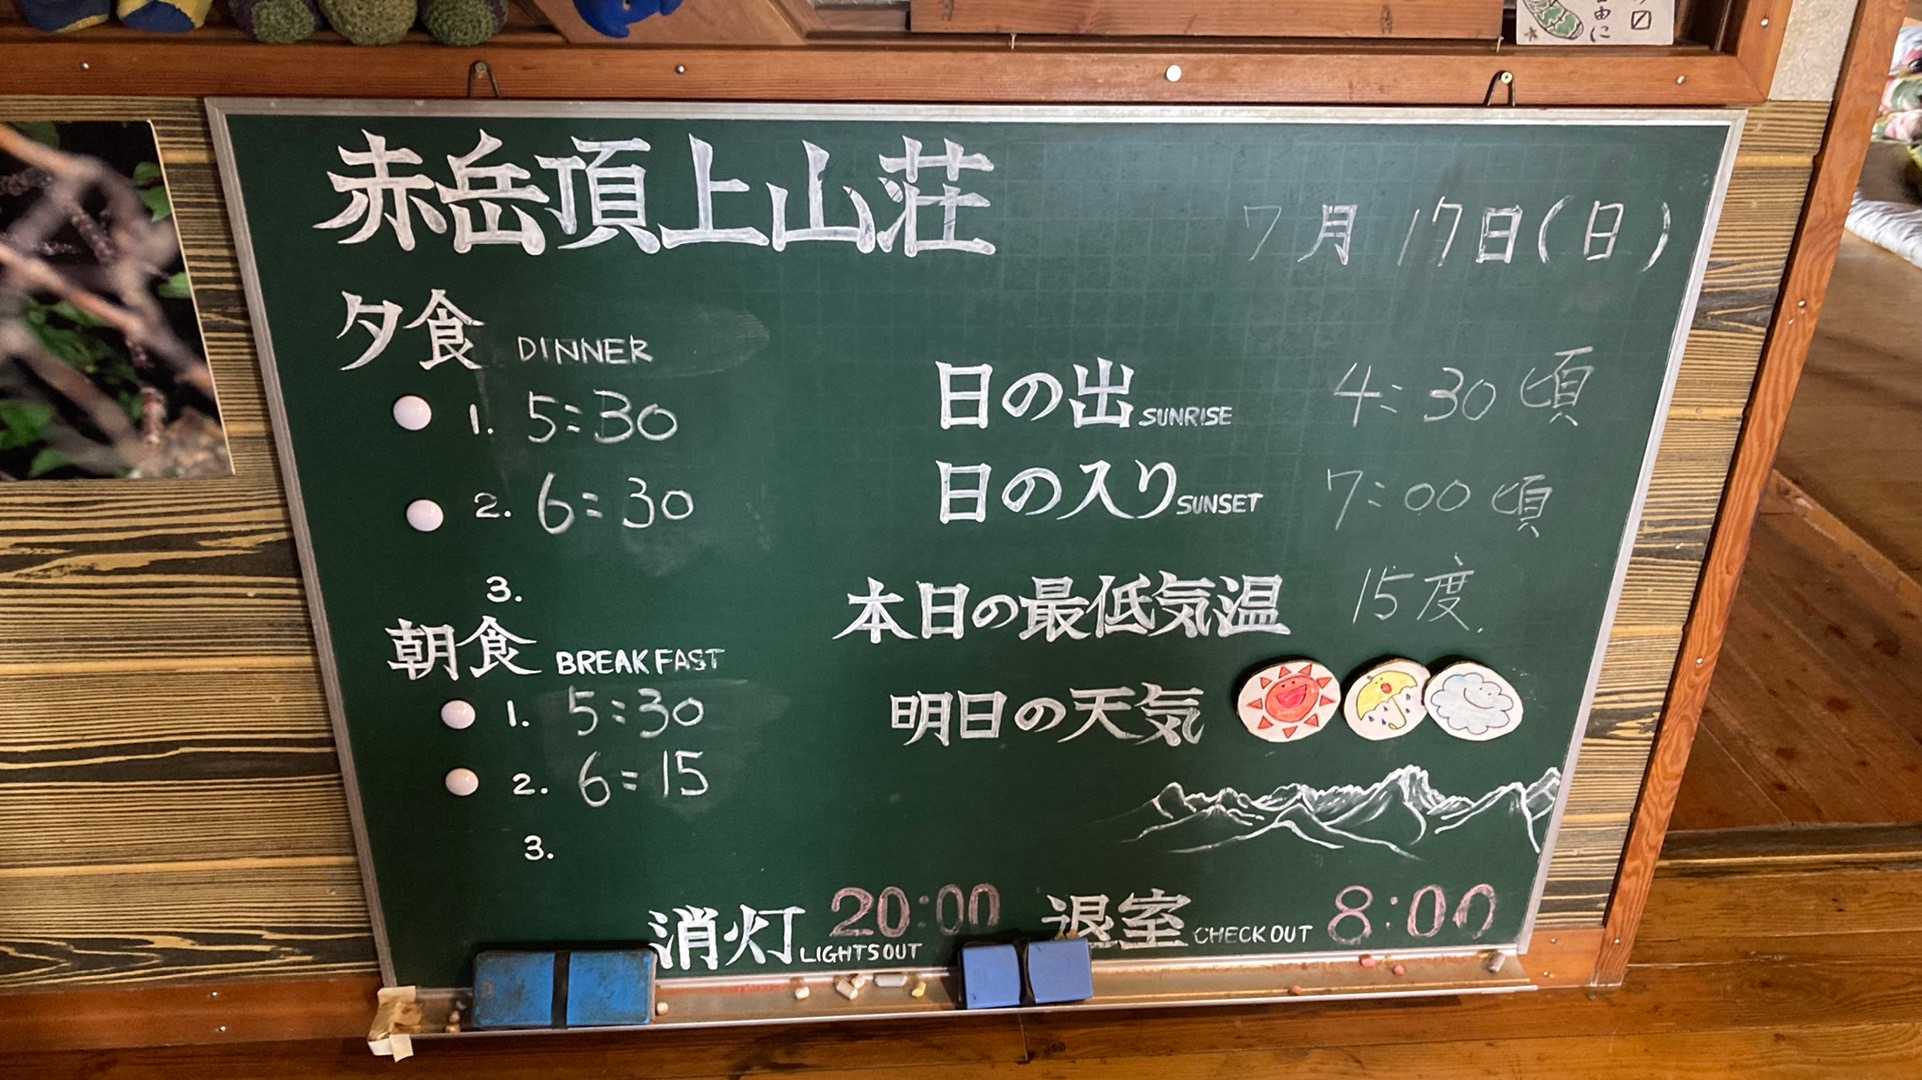 由に
赤岳頂上山荘
7月17日(日)
夕食 DINNER
1. 5:30
2. 6:30
3.
朝食 BREAKFAST
1. 5:30
2. 6:15
3.
日の出 SUNRISE 4:30頃
日の入り SUNSET 7:00頃
本日の最低気温 15度.
明日の天気
消灯 LIGHTS OUT 20:00
退室 CHECK OUT 8:00